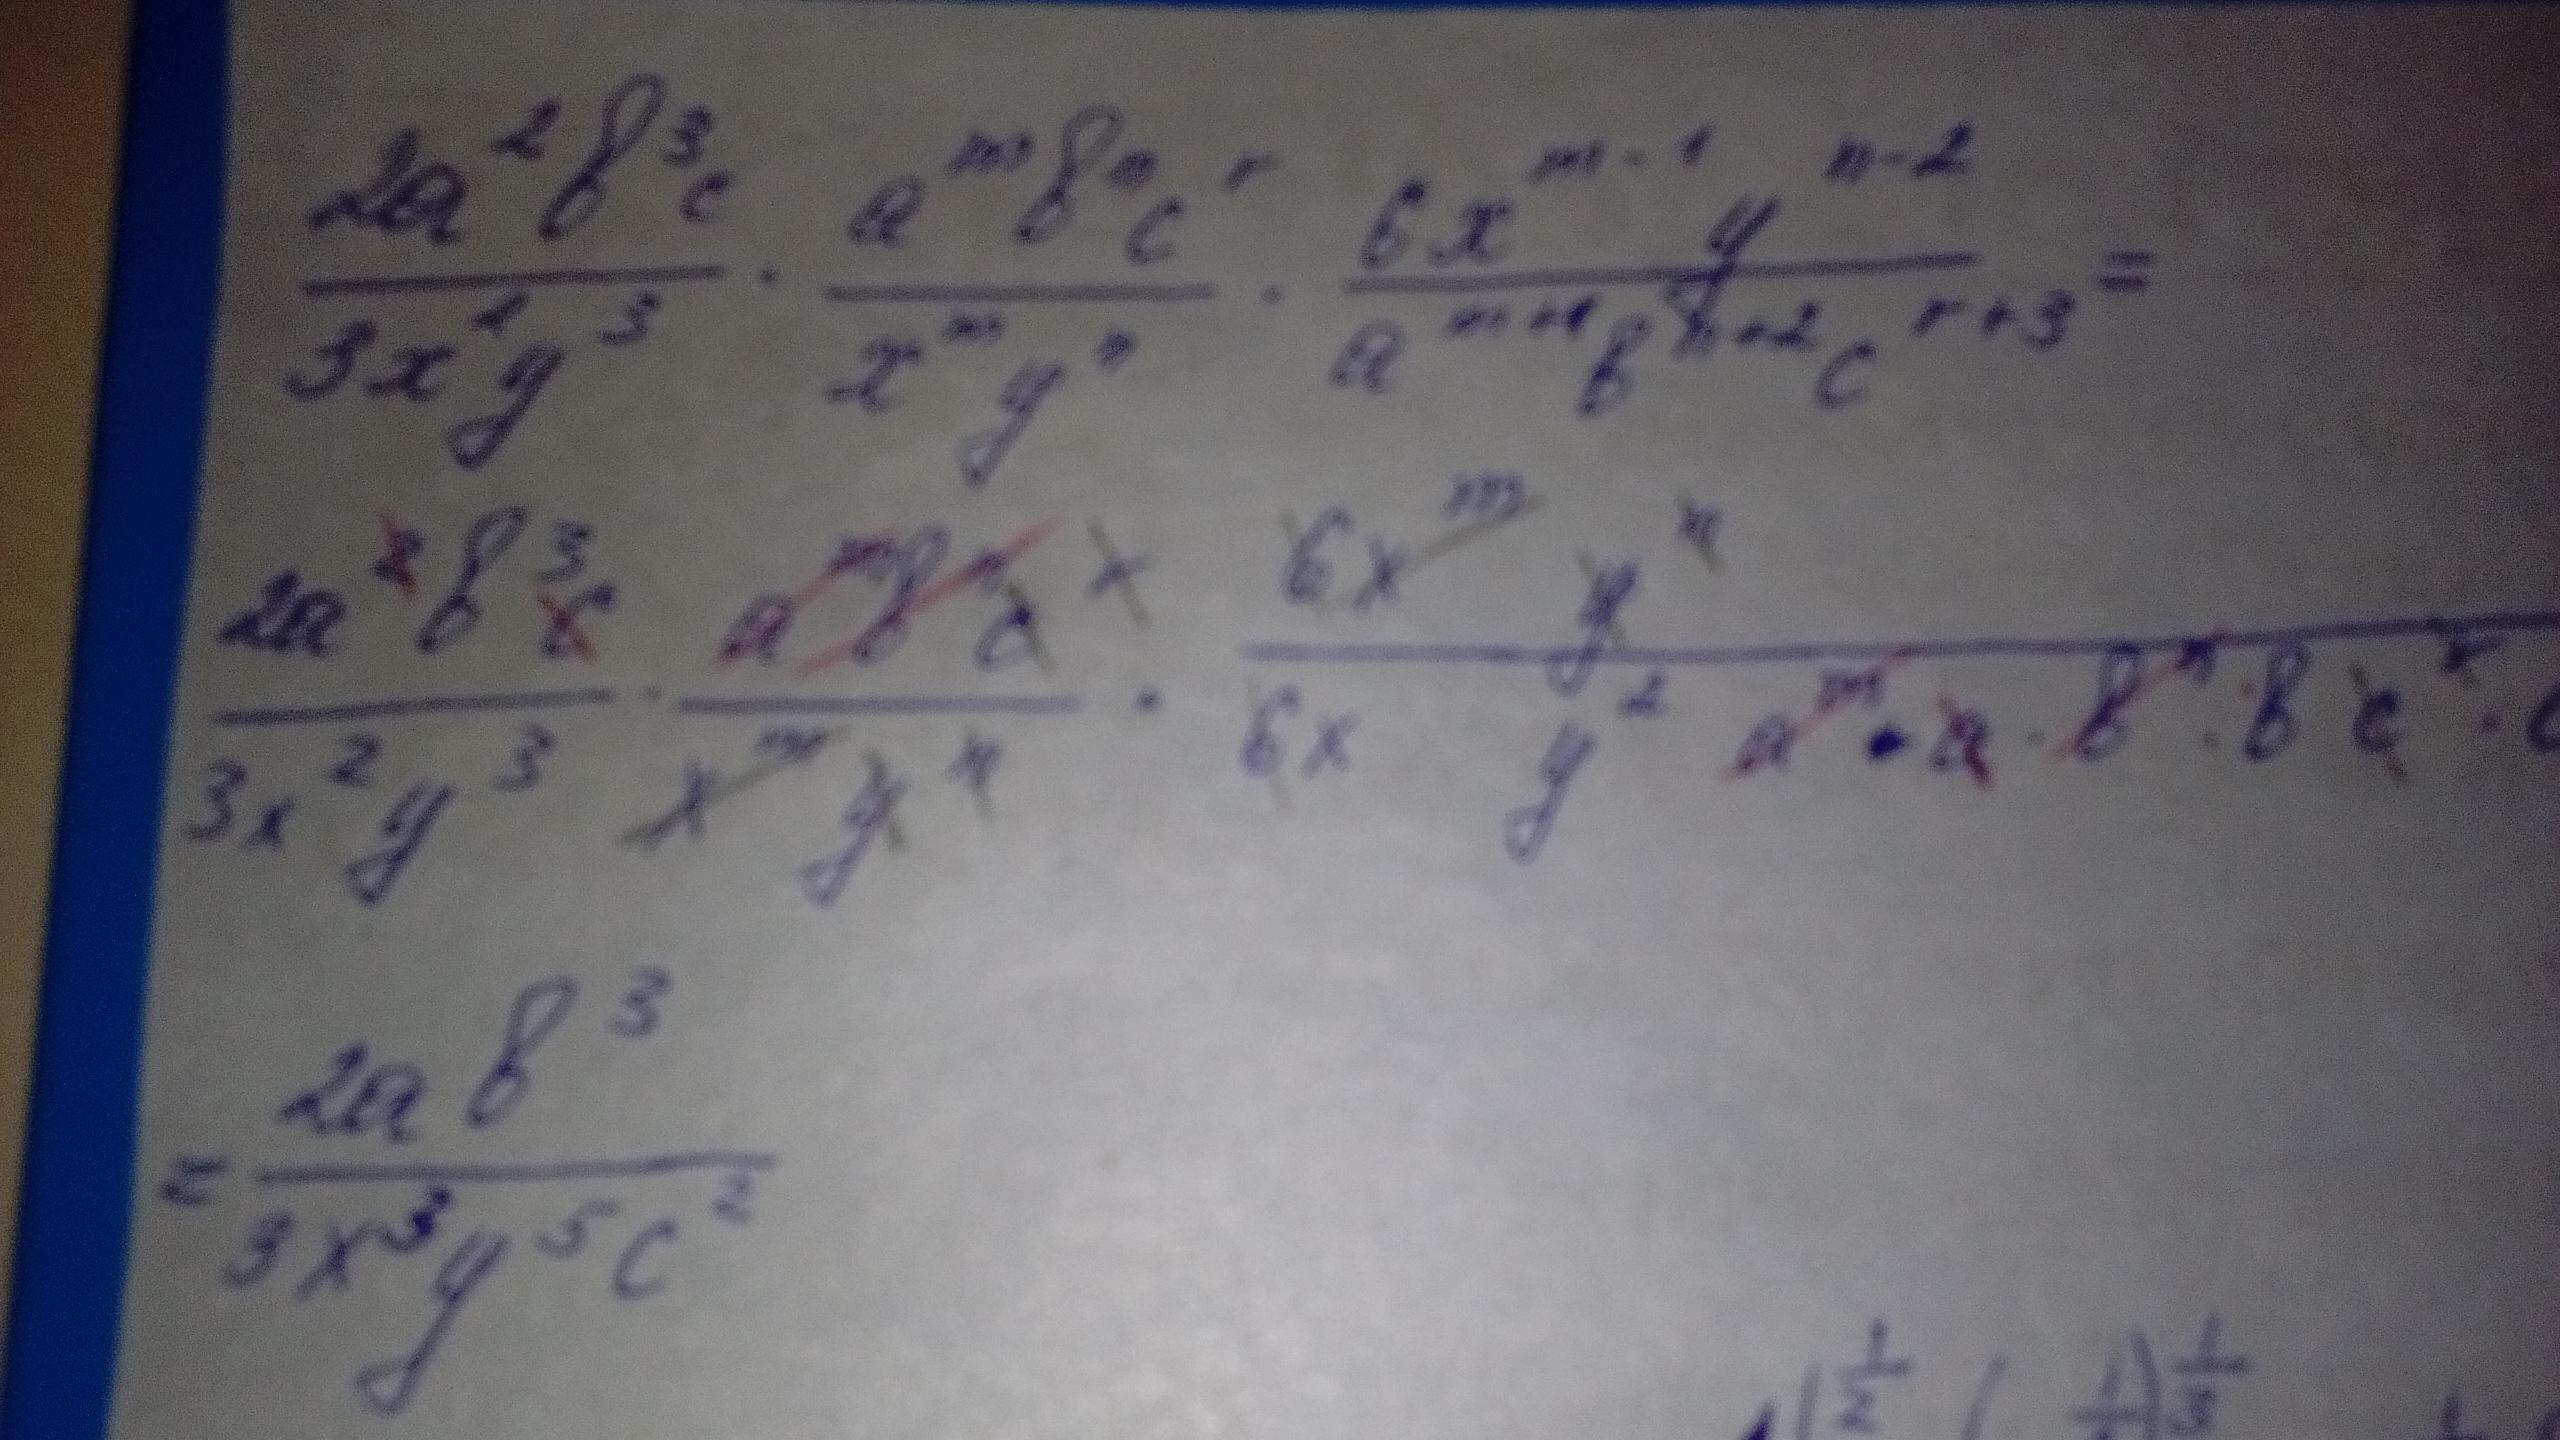 2a²b³c / 3x²y³ · aᵐbⁿcʳ / xᵐyⁿ · 6xᵐ⁻¹yⁿ⁻² / aᵐ⁺¹bⁿ⁺²cʳ⁺³ =
2a²b³c / 3x²y³ · aᵐbⁿcʳ / xᵐyⁿ · 6xᵐyⁿ / 6xy²aᵐ·a·bⁿ·bcʳ·c
= 2ab³ / 3x³y⁵c²